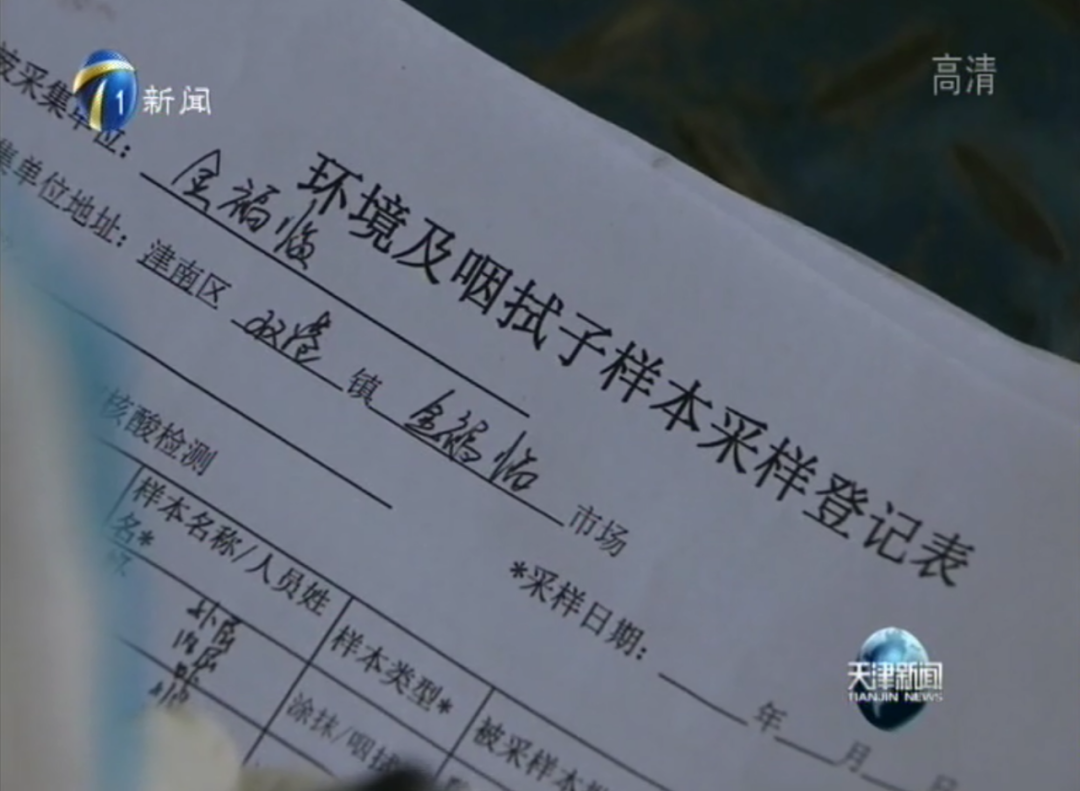 1 新闻
高清
环境及咽拭子样本采样登记表
被采集单位：金福临
集单位地址：津南区双港镇金福临市场
核酸检测
*采样日期：年月日
样本名称/人员姓名*
样本类型*
被采样本
涂抹/咽拭
天津新闻
TIANJIN NEWS